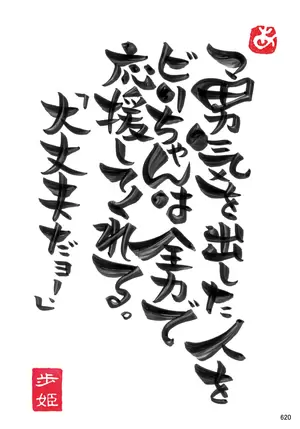 あ
勇気を出した人を
ビリちゃんは全力で
応援してくれる。
「大丈夫だョー」
歩姫
620